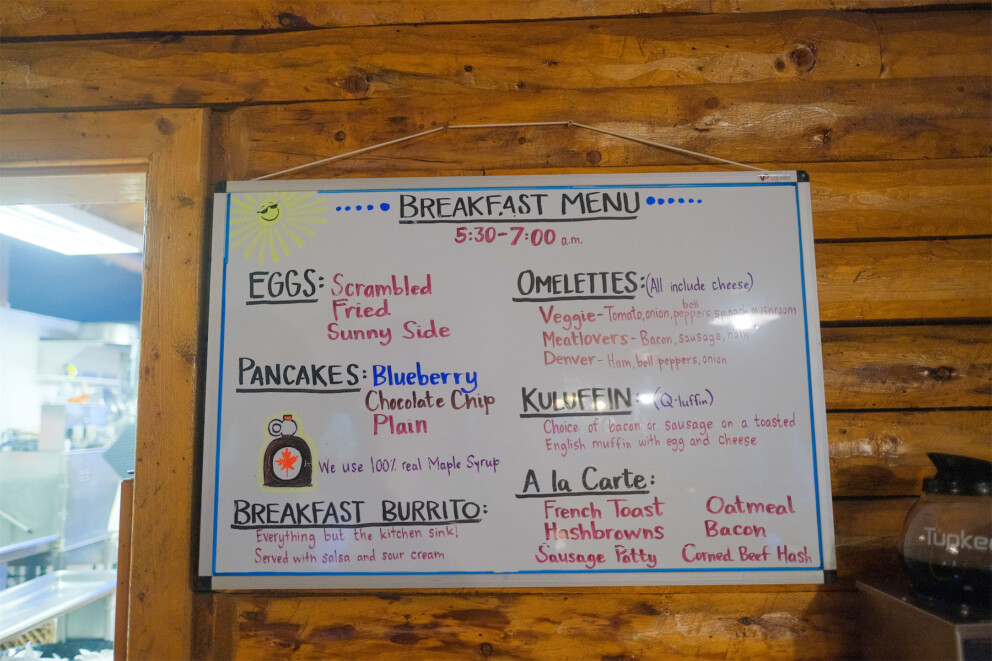 BREAKFAST MENU
5:30-7:00 a.m.
EGGS: Scrambled
Fried
Sunny Side
PANCAKES: Blueberry
Chocolate Chip
Plain
We use 100% real Maple Syrup
BREAKFAST BURRITO:
Everything but the kitchen sink!
Served with salsa and sour cream
OMELETTES: (All include cheese)
Veggie- Tomato, onion, bell peppers, mushroom
Meatlovers- Bacon, sausage, ham
Denver- Ham, bell peppers, onion
KULUFFIN: (Q-luffin)
Choice of bacon or sausage on a toasted
English muffin with egg and cheese
A la Carte:
French Toast Oatmeal
Hashbrowns Bacon
Sausage Patty Corned Beef Hash